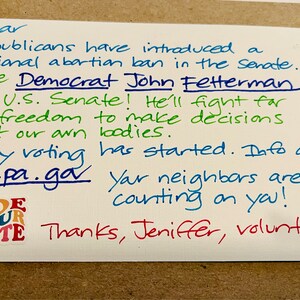 ar
publicans have introduced a
ional abortion ban in the Senate.
e Democrat John Fetterman
U.S. Senate! He'll fight for
freedom to make decisions
t our own bodies.
y voting has started. Info a
.pa.gov
Your neighbors are
counting on you!
DE
UR
TE
Thanks, Jeniffer, volunt